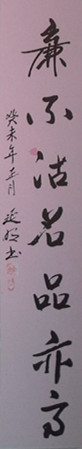 廉不沽名品亦高
癸未年正月